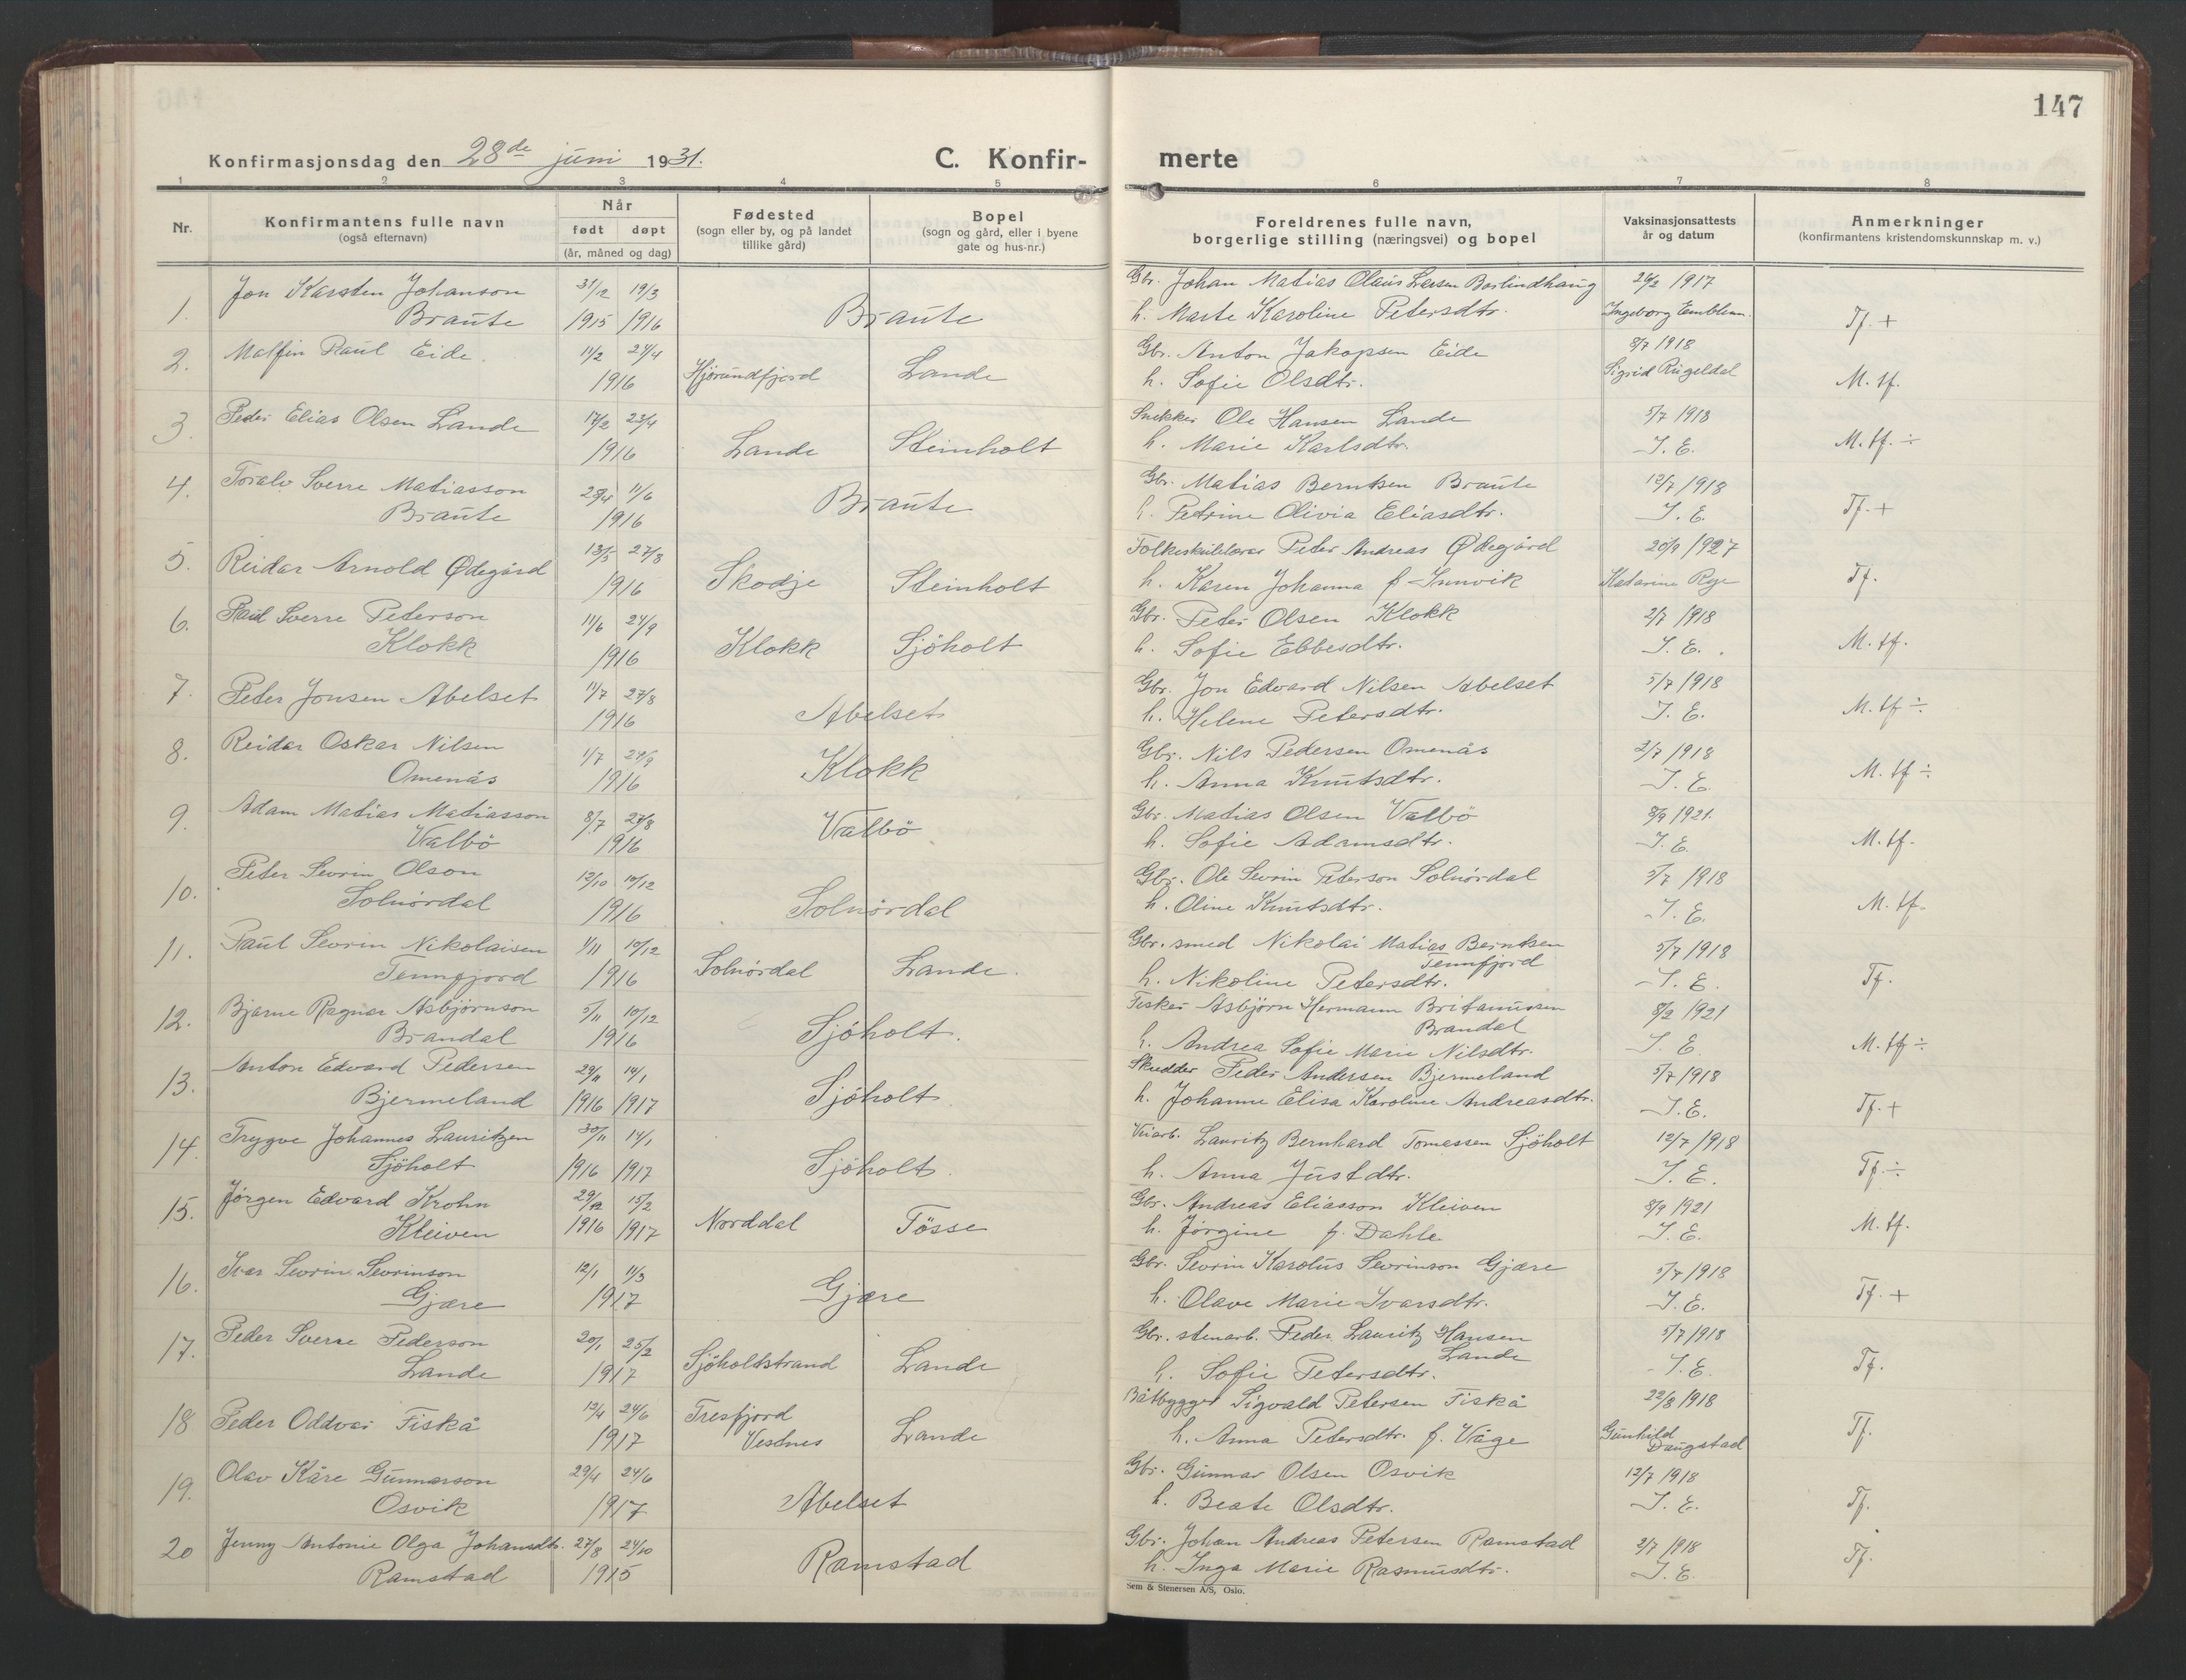 147
Konfirmasjonsdag den 28de juni 1931.
C. Konfir-
merte
1 2 3 4 5 6 7 8
Nr.
Konfirmantens fulle navn
(også efternavn)
Når
født døpt
(år, måned og dag)
Fødested
(sogn eller by, og på landet
tillike gård)
Bopel
(sogn og gård, eller i byene
gate og hus-nr.)
Foreldrenes fulle navn,
borgerlige stilling (næringsvei) og bopel
Vaksinasjonsattests
år og datum
Anmerkninger
(konfirmantens kristendomskunnskap m. v.)
Jon Karsten Johanson 31/12 19/3 Gbr. Johan Matias Olaus Larsen 26/2 1917
1. Braute 1915 1916 Braute h. Marte Karoline Petersdtr. Ingeborg Emblem. Tf. +
2. Malfin Paul Eide. 11/2 24/4 Gbr. Anton Jakopsen Eide 8/7 1918
1916 Hjørundfjord Lande h. Sofie Olsdtr. Sigrid M. tf.
3. Peder Elias Olsen Lande 17/2 23/4 Snekker Ole Hansen Lande 5/7 1918
1916 Lande Steinholt h. Marie Karlsdtr. I. E. M. tf. ÷
4. Toralv Sverre Matiasson 11/6 Gbr. Matias Berntsen Braute 12/7 1918
Braute 1916 Braute h. Petrine Olivia Eliasdtr. I. E. Tf. +
5. Reidar Arnold Ødegård 13/5 27/8 Folkeskulelærar Peder Andreas Ødegård 20/9 1927
1916 Skodje Steinholt h. Karen Johanna f. Innvik Katarina Tf.
6. Paul Sverre Peterson 11/6 24/9 Gbr. Peter Olsen Klokk 2/7 1918
Klokk 1916 Klokk Sjöholt h. Sofie Ebbesdtr. I. E. M. tf.
7. Peter Jonsen Abelset 11/7 27/8 Gbr. Jon Edvard Nilsen Abelset 5/7 1918
1916 Abelset h. Helene Petersdtr. I. E. M. tf ÷
8. Reidar Oskar Nilsen 1/7 24/9 Gbr. Nils Pedersen Omenås 2/7 1918
Omenås 1916 Klokk h. Anna Knutsdtr. I. E. M. tf ÷
9. Adam Matias Matiasson 8/7 27/8 Gbr. Matias Olsen Valbö 8/9 1921.
Valbö 1916 Valbö h. Sofie Adamsdtr. I. E. M. tf.
10. Peter Sevrin Olson 12/10 10/12 Gbr. Ole Sevrin Peterson Solnördal 5/7 1918
Solnördal 1916 Solnördal h. Oline Knutsdtr. I. E. M. tf.
11. Paul Sevrin Nikolaisen 1/11 10/12 Gbr. smed Nikolai Matias Berntsen 5/7 1918
Tennfjord
Tennfjord 1916 Solnördal Lande. h. Nikoline Petersdtr. I. E. Tf.
12. Bjarne Ragnar Asbjörnson 5/11 10/12 Fisker Asbjörn Hermann Britanussen 8/2 1921
Brandal
Brandal 1916 Sjöholt. h. Andrea Sofie Marie Nilsdtr. I. E. M. tf ÷
13. Anton Edvard Pedersen 29/11 14/1 Skredder Peder Andersen Bjermeland 5/7 1918
Bjermeland 1916 1917 Sjöholt h. Johanne Elisa Karoline Andreasdtr. I. E. Tf. +
14. Trygve Johannes Lauritzen 30/11 14/1 Veiarb. Lauritz Bernhard Tomassen Sjöholt 12/7 1918
Sjöholt 1916 1917 Sjöholt. h. Anna Justdtr. I. E. Tf. ÷
15. Jørgen Edvard Krohn 29/12 15/2 Gbr. Andreas Eliasson Kleiven 8/9 1921
Kleiven 1916 1917 Norddal Tösse h. Jørgine f. Dahle I. E. M. tf.
16. Ivar Sevrin Sevrinson 12/1 11/3 Gbr. Sevrin Karolus Sevrinson Gjære 5/7 1918
Gjære 1917 Gjære h. Olave Marie Ivarsdtr. I. E. Tf. +
17. Peder Sverre Pederson 20/1 25/2 Gbr. stenarb. Peder Lauritz Hansen 5/7 1918
Lande
Lande 1917 Sjöholtstrand Lande h. Sofie Petersdtr. I. E. Tf.
18 Peder Oddvar Fiskå 12/4 24/6 Tresfjord Båtbygger Sigvald Petersen Fiskå 22/8 1918
1917 Vestnes Lande h. Anna Petersdtr. f. Våge Gunhild Daugstad Tf.
19. Olav Kåre Gunnarson 29/4 24/6 Gbr. Gunnar Olsen Osvik 12/7 1918
Osvik 1917 Abelset h. Beate Olsdtr. I. E. Tf.
20 Jenny Antonie Olga Johansdtr. 27/8 24/10 Gbr. Johan Andreas Petersen Ramstad 2/7 1918
Ramstad 1915 Ramstad h. Inga Marie Rasmusdtr. I. E. Tf.
Sem & Stenersen A/S, Oslo.